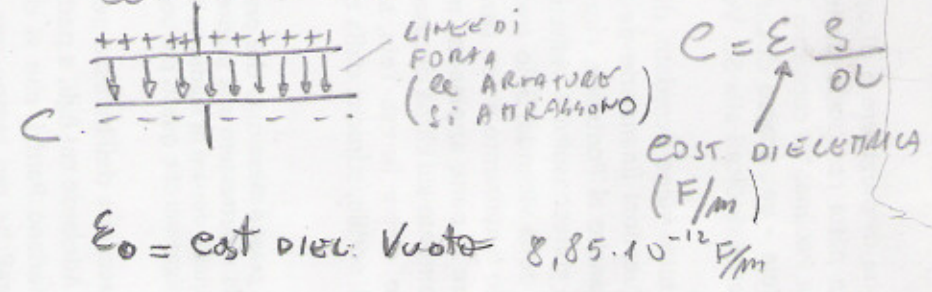 +++++ +++++
LINEE DI
FORZA
(le ARMATURE
si ATTRAGGONO)
C = ε S/d
C
- - - - - -
COST DIELETTRICA
(F/m)
ε₀ = cost DIEL. Vuoto 8,85·10⁻¹² F/m